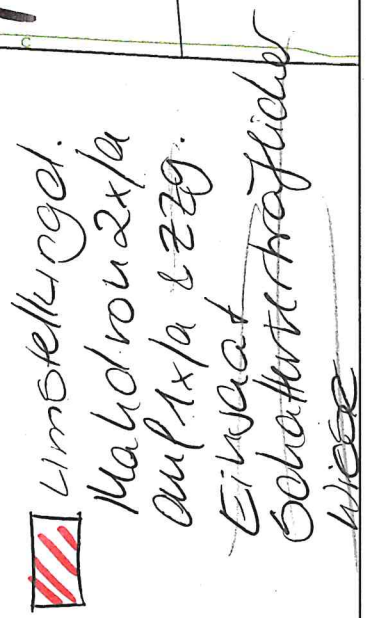 Umstellung d.
Mahd von 2x/a
auf 1x/a & zzg.
Einsaat
Schattenverträglicher
Wiese
C